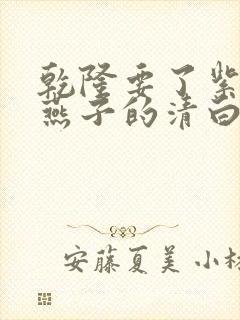 乾隆要了紫
燕子的清白
安藤夏美 小林